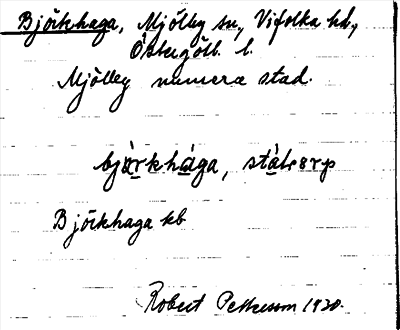 Björkhaga, Mjölby sn, Vifolka hd,
Östergötl. l.
Mjölby numera stad.
bjàrkhága, stà
Björkhaga kb
Robert Pettersson 1930.